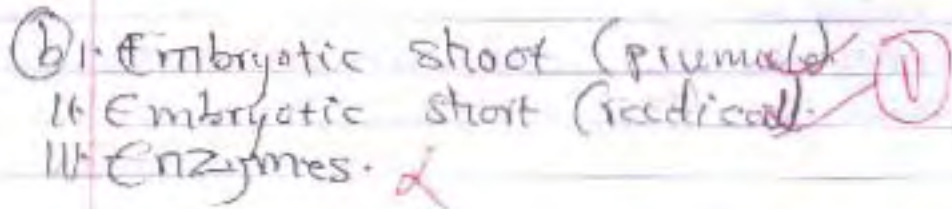 (b) I. Embryotic shoot (plumule)
II. Embryotic short (radical).
III. Enzymes.
1